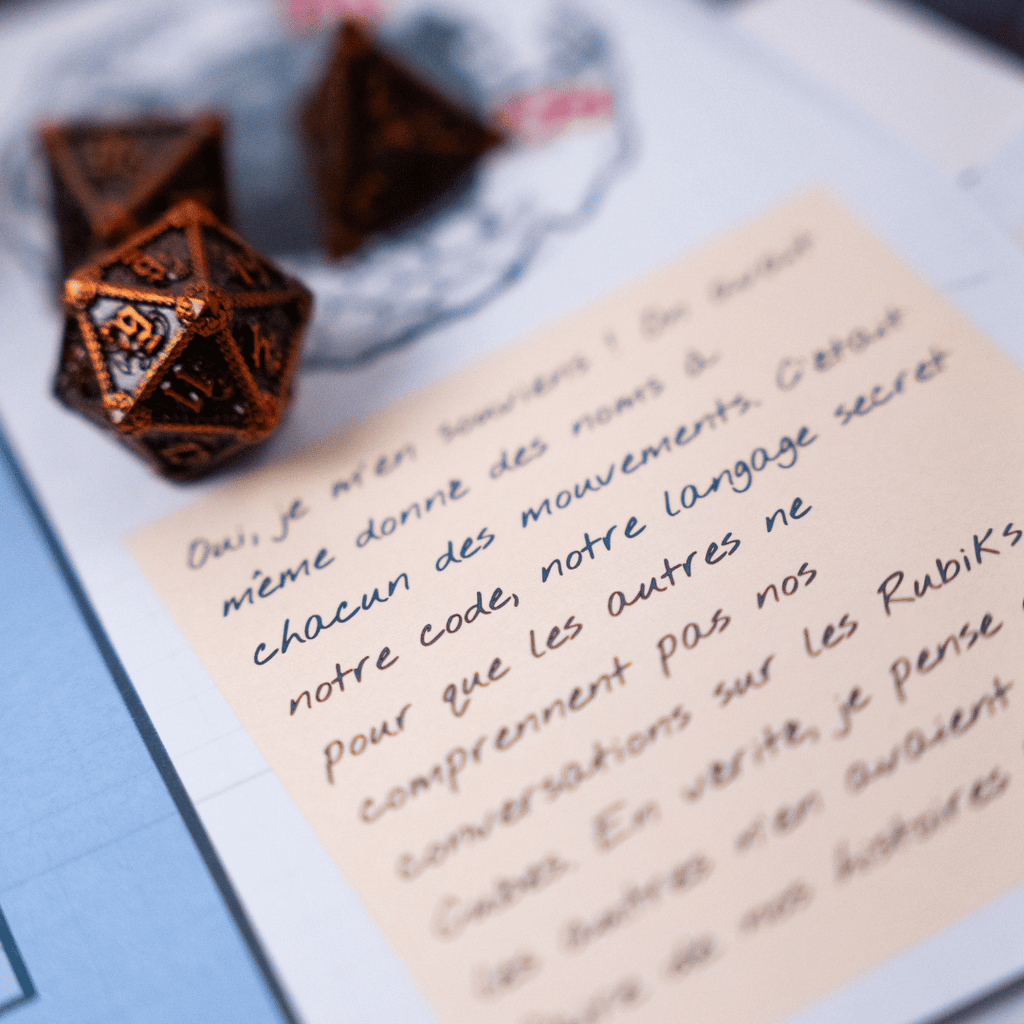 Oui, je m'en souviens ! On avait
même donné des noms à
chacun des mouvements. C'était
notre code, notre langage secret
pour que les autres ne
comprennent pas nos
conversations sur les Rubiks
Cubes. En vérité, je pense
les autres n'en avaient
de nos histoires